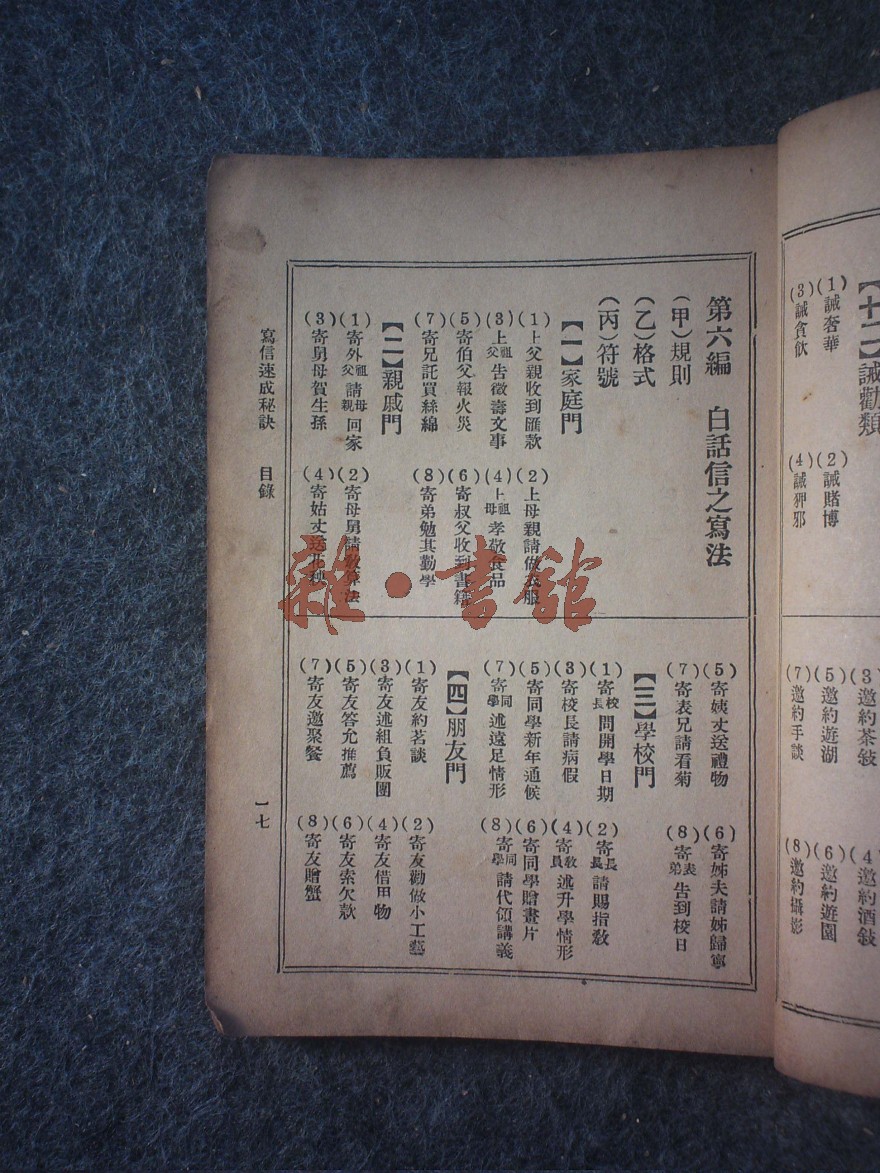 【十二】誡勸類
(1)誡奢華
(2)誡賭博
(3)誡貪飲
(4)誡狎邪
(3)邀約茶敍
(4)邀約酒敍
(5)邀約遊湖
(6)邀約遊園
(7)邀約手談
(8)邀約攝影
第六編 白話信之寫法
(甲)規則
(乙)格式
(丙)符號
【一】家庭門
(1)上父親收到匯款
(2)上母親請做衣服
(3)上祖父告徵壽文事
(4)上祖母孝敬食品
(5)寄伯父報火災
(6)寄叔父收到書籍
(7)寄兄託買絲綿
(8)寄弟勉其勤學
【二】親戚門
(1)寄外祖父請母親回家
(2)寄母舅請敎算法
(3)寄舅母賀生孫
(4)寄姑丈送花秧
(5)寄姨丈送禮物
(6)寄姊夫請姊歸寧
(7)寄表兄請看菊
(8)寄表弟告到校日
【三】學校門
(1)寄校長問開學日期
(2)寄校長請賜指敎
(3)寄校長請病假
(4)寄敎員述升學情形
(5)寄同學新年通候
(6)寄同學贈畫片
(7)寄同學述遠足情形
(8)寄同學請代領講義
【四】朋友門
(1)寄友約茗談
(2)寄友勸做小工藝
(3)寄友述組負販團
(4)寄友借用物
(5)寄友答允推薦
(6)寄友索欠款
(7)寄友邀聚餐
(8)寄友贈蟹
寫信速成秘訣 目錄
一七
雜·書館